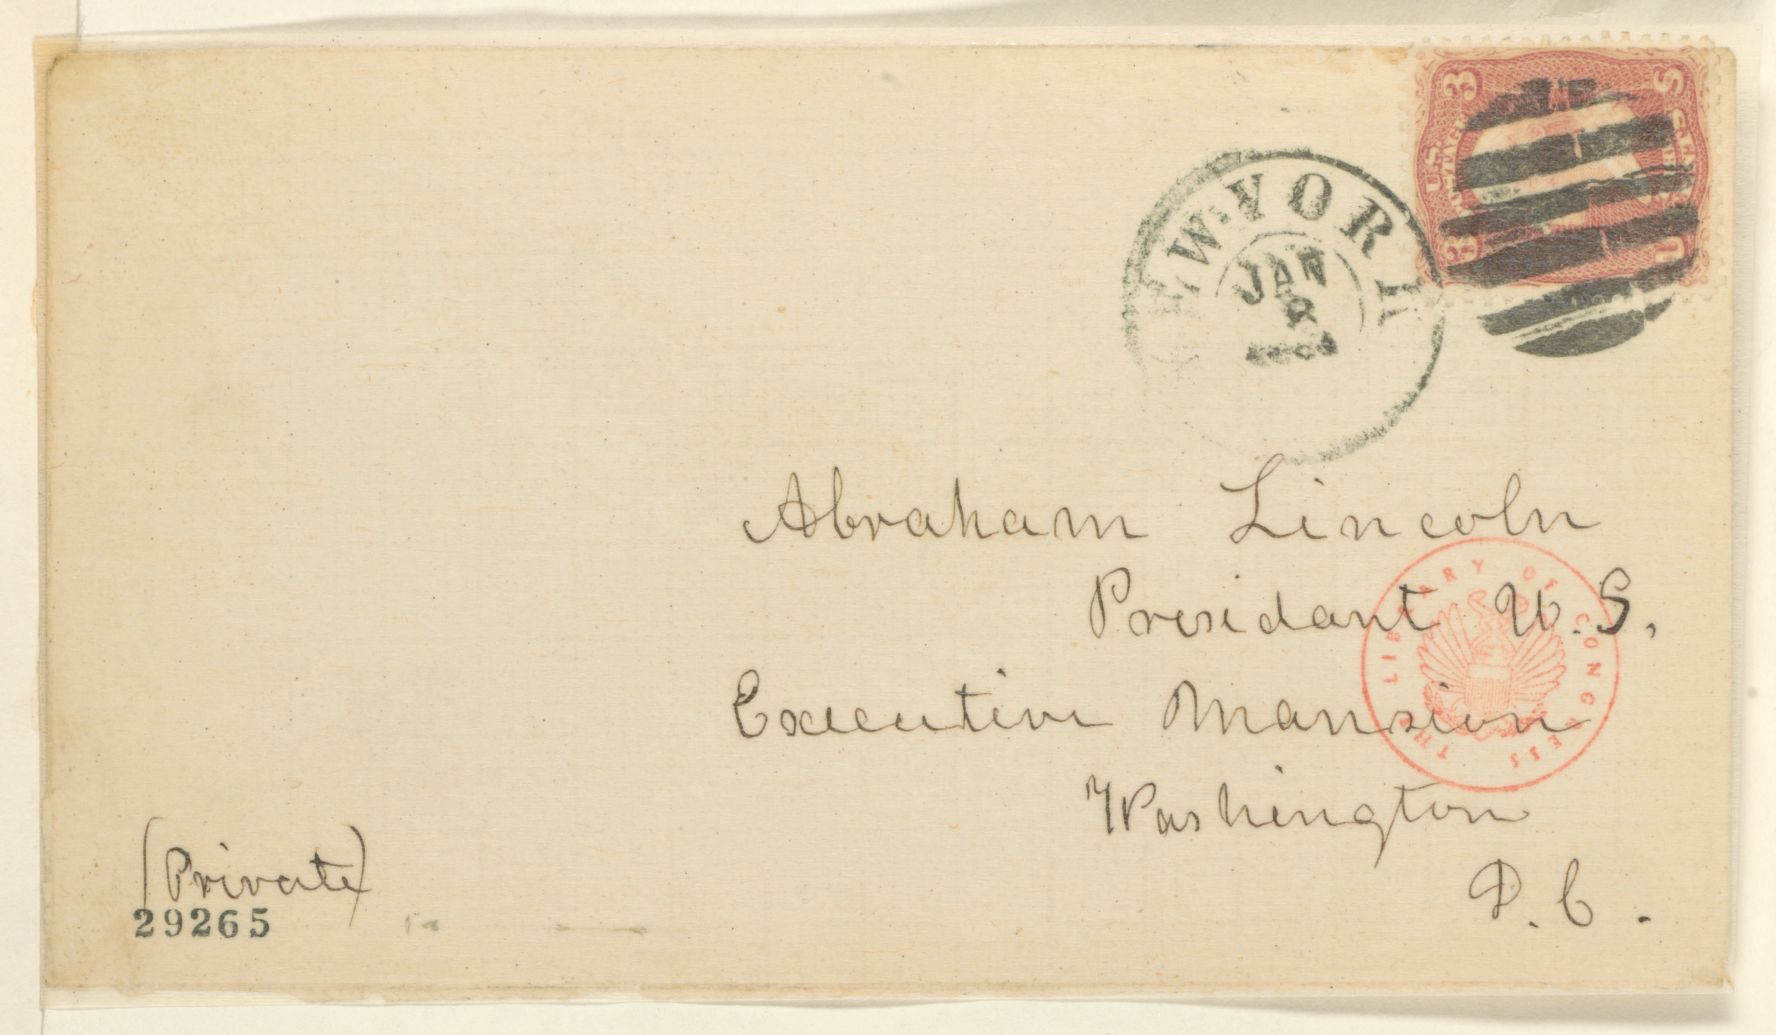 NEW YORK
JAN
3 S
U.S.
3 U
Abraham Lincoln
Presidant U.S.
Executive Mansion
Washington
D.C.
THE LIBRARY OF CONGRESS
(Private)
29265